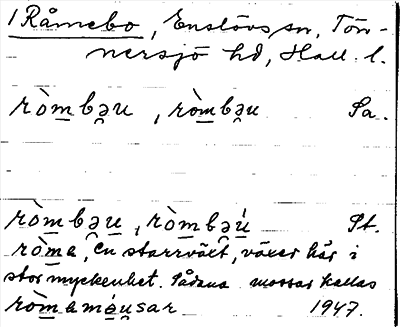 1 Råmebo, Enslövs sn, Tön-
nersjö hd, Hall. l.
ròmbəu, ròmbəu Sa.
ròmbəu, ròmbəú St.
ròma, en starrväxt, växer här i
stor myckenhet. Sådana mossar kallas
ròmamáusar 1947.